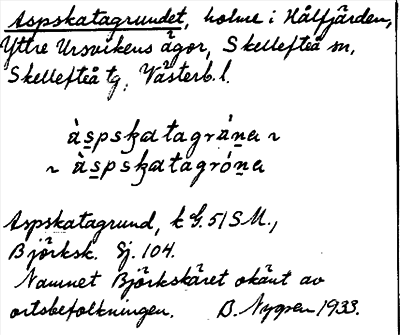 Aspskatagrundet, holme i Hålfjärden,
Yttre Ursvikens ägor, Skellefteå sn,
Skellefteå tg, Västerb. l.
àspskatagrána ~
~ àspskatagróna
Aspskatagrund, k G. 51 SM.,
Björksk. Sj. 104.
Namnet Björkskäret okänt av
ortsbefolkningen. B. Nygren 1933.